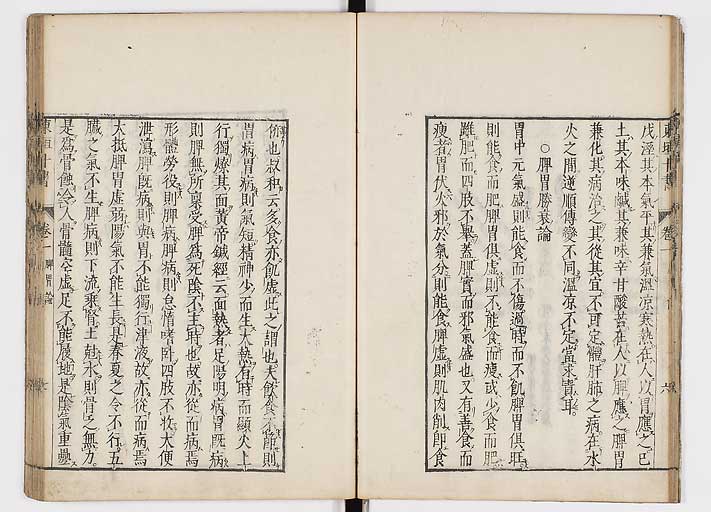 戊湮其本氣平其兼氣溫凉寒熱在人以胃應之已
土其本味鹹其兼味辛甘酸苦在人以脾應之脾胃
兼化其病治之其從其宜不可定體肝肺之病在水
火之間逆順傳變不同溫凉不定當求責耳
○脾胃勝衰論
胃中元氣盛則能食而不傷過時而不飢脾胃俱旺
則能食而肥脾胃俱虛則不能食而瘦或少食而肥
雖肥而四肢不舉蓋脾實而邪氣盛也又有善食而
瘦者胃伏火邪於氣分則能食脾虛則肌肉削即食
㑊也叔和云多食亦肌虛此之謂也夫飲食不節則
胃病胃病則氣短精神少而生大熱有時而顯火上
行獨燎其面黃帝鍼經云面熱者足陽明病胃既病
則脾無所稟受脾為死陰不主時也故亦從而病焉
形體勞役則脾病脾病則怠惰嗜卧四肢不收大便
泄瀉脾既病則其胃不能獨行津液故亦從而病焉
大抵脾胃虛弱陽氣不能生長是春夏之令不行五
臟之氣不生脾病則下流乘腎土尅水則骨乏無力
是爲骨蝕令人骨髓空虛足不能履地是陰氣重疊
東垣十書
卷一
脾胃論